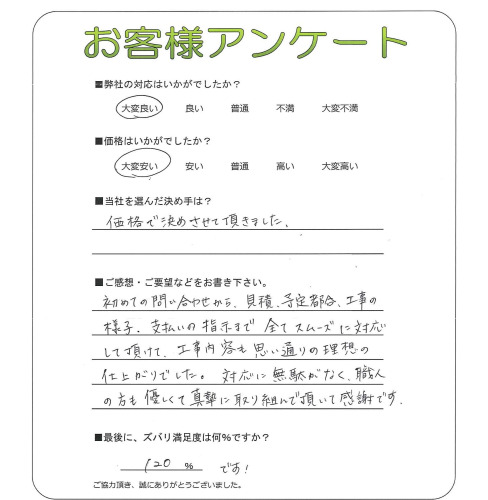 お客様アンケート
■弊社の対応はいかがでしたか？
大変良い 良い 普通 不満 大変不満
■価格はいかがでしたか？
大変安い 安い 普通 高い 大変高い
■当社を選んだ決め手は？
価格で決めさせて頂きました。
■ご感想・ご要望などをお書き下さい。
初めての問い合わせから、見積、予定都合、工事の
様子、支払いの指示まで 全てスムーズに対応
して頂けて、工事内容も思い通りの理想の
仕上がりでした。 対応に無駄がなく、職人
の方も優しくて真摯に取り組んで頂いて感謝です。
■最後に、ズバリ満足度は何%ですか？
120 % です！
ご協力頂き、誠にありがとうございました。